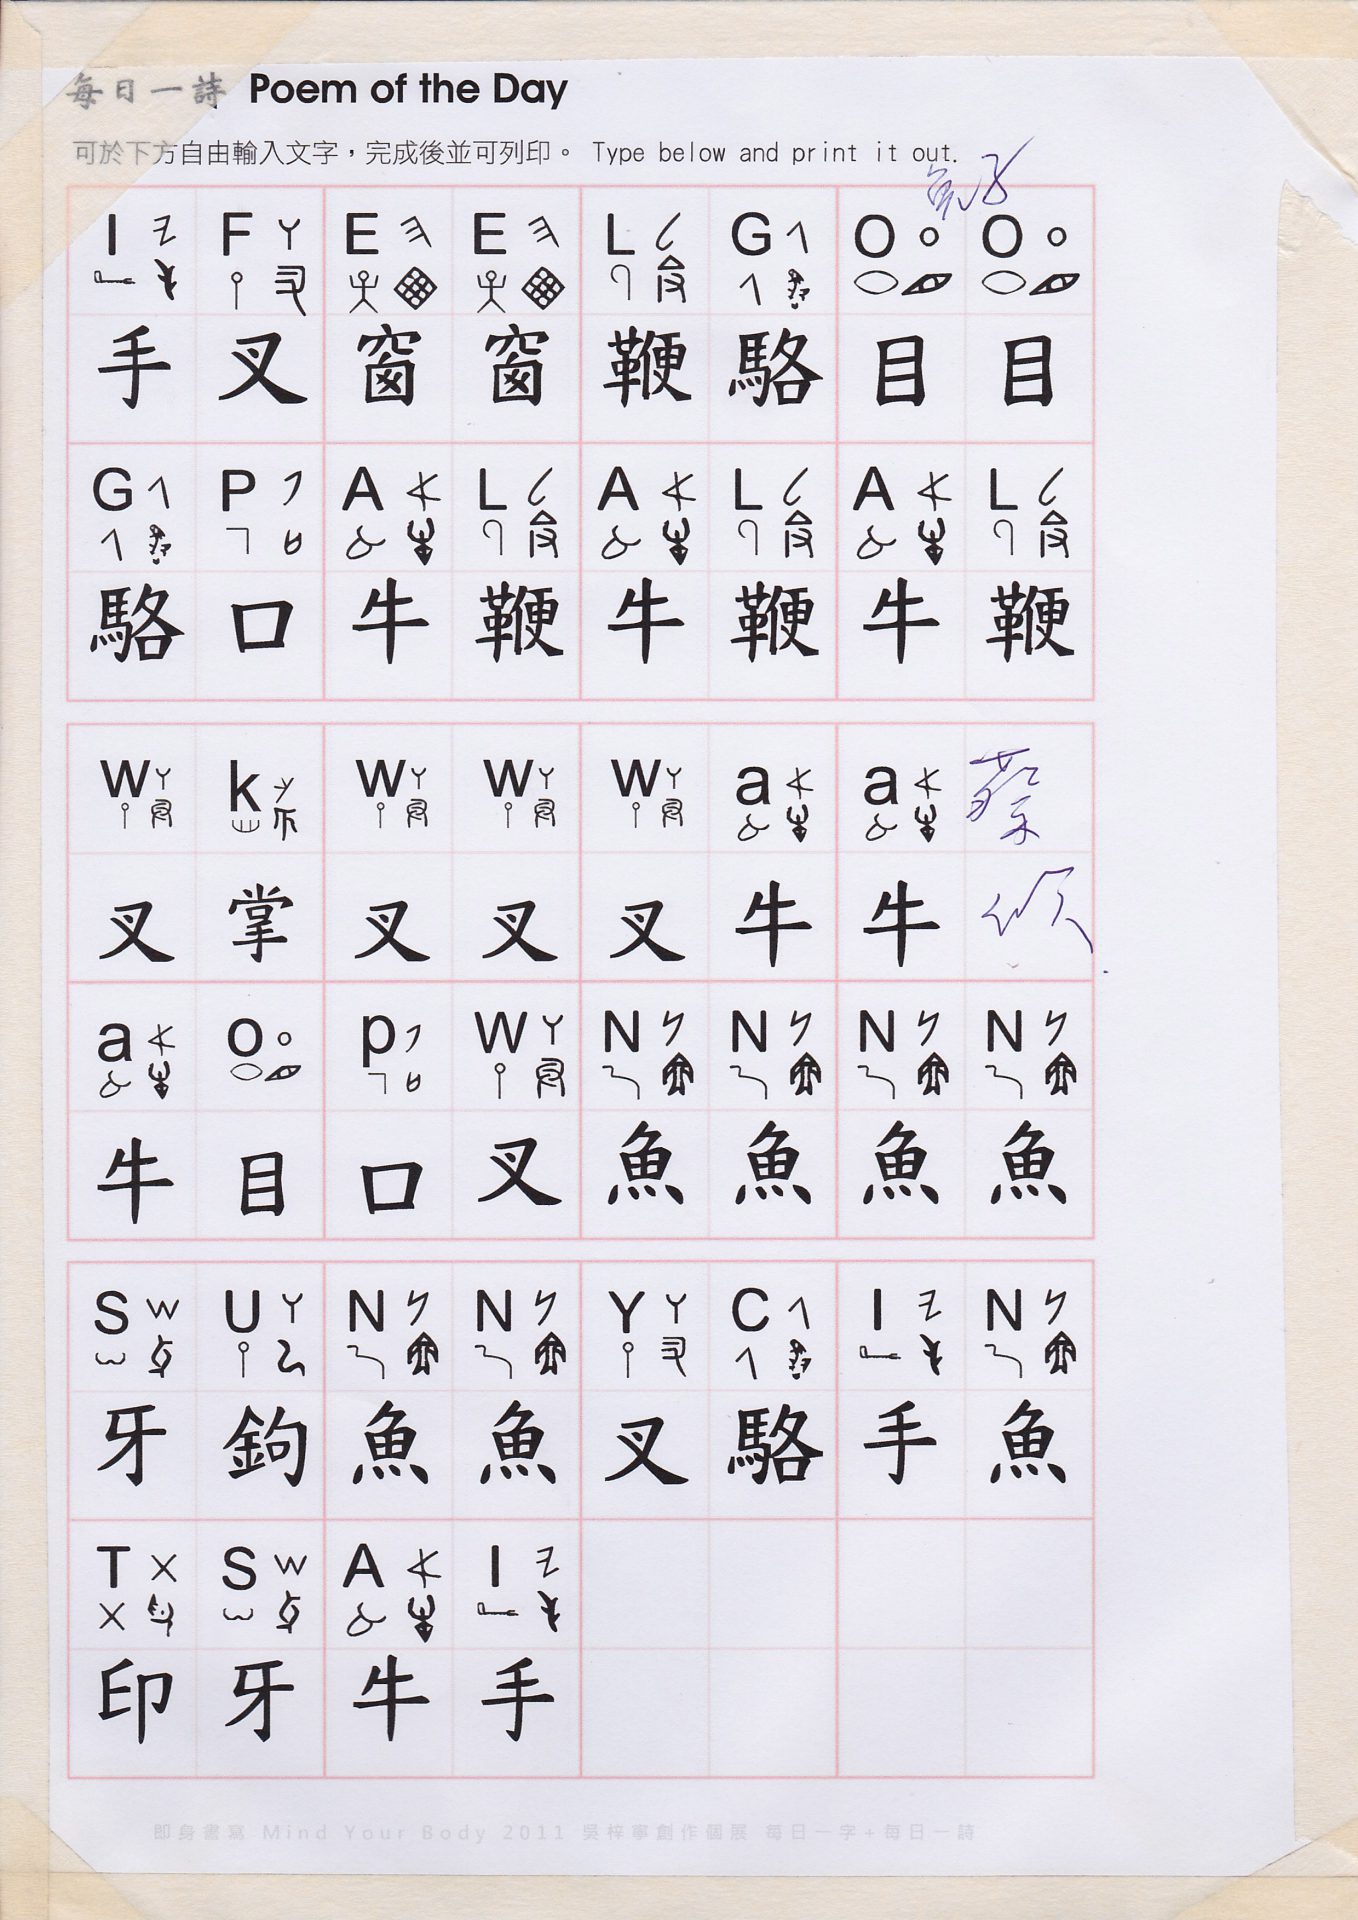 每日一詩 Poem of the Day
可於下方自由輸入文字，完成後並可列印。 Type below and print it out.
I F E E L G O O
手 叉 窗 窗 鞭 駱 目 目
G P A L A L A L
駱 口 牛 鞭 牛 鞭 牛 鞭
W k W W W a a
叉 掌 叉 叉 叉 牛 牛
a o p W N N N N
牛 目 口 叉 魚 魚 魚 魚
S U N N Y C I N
牙 鉤 魚 魚 叉 駱 手 魚
T S A I
印 牙 牛 手
即身書寫 Mind Your Body 2011 吳梓寧創作個展 每日一字+每日一詩